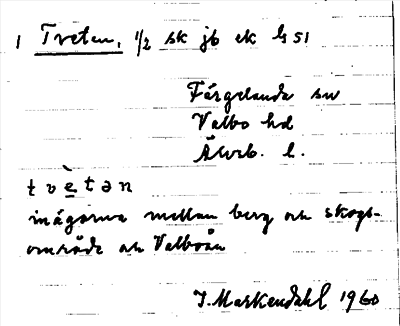 1 Tveten, 1/2 sk jb ek h 51
Färgelanda sn
Valbo hd
Älvsb. l.
tvètən
inägorna mellan berg och skogs-
område och Valboån
J. Markendahl 1960